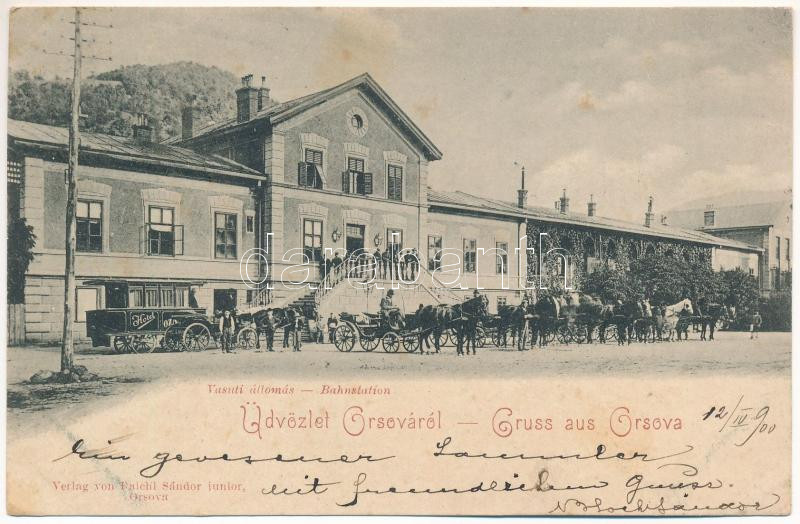 Hotel
darabanth.com
Vasuti állomás — Bahnstation
Üdvözlet Orsováról — Gruss aus Orsova
12/IV 900
Ein gewesener Sammler
mit freundlichem Gruss.
Verlag von Raichl Sándor junior,
Orsova
Sándor